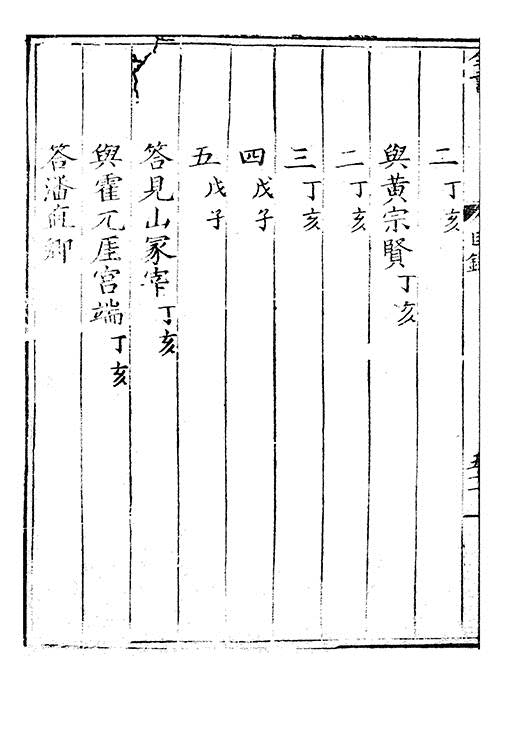 二丁亥
與黃宗賢丁亥
二丁亥
三丁亥
四戊子
五戊子
答見山冢宰丁亥
與霍兀厓宮端丁亥
答潘直卿
目錄